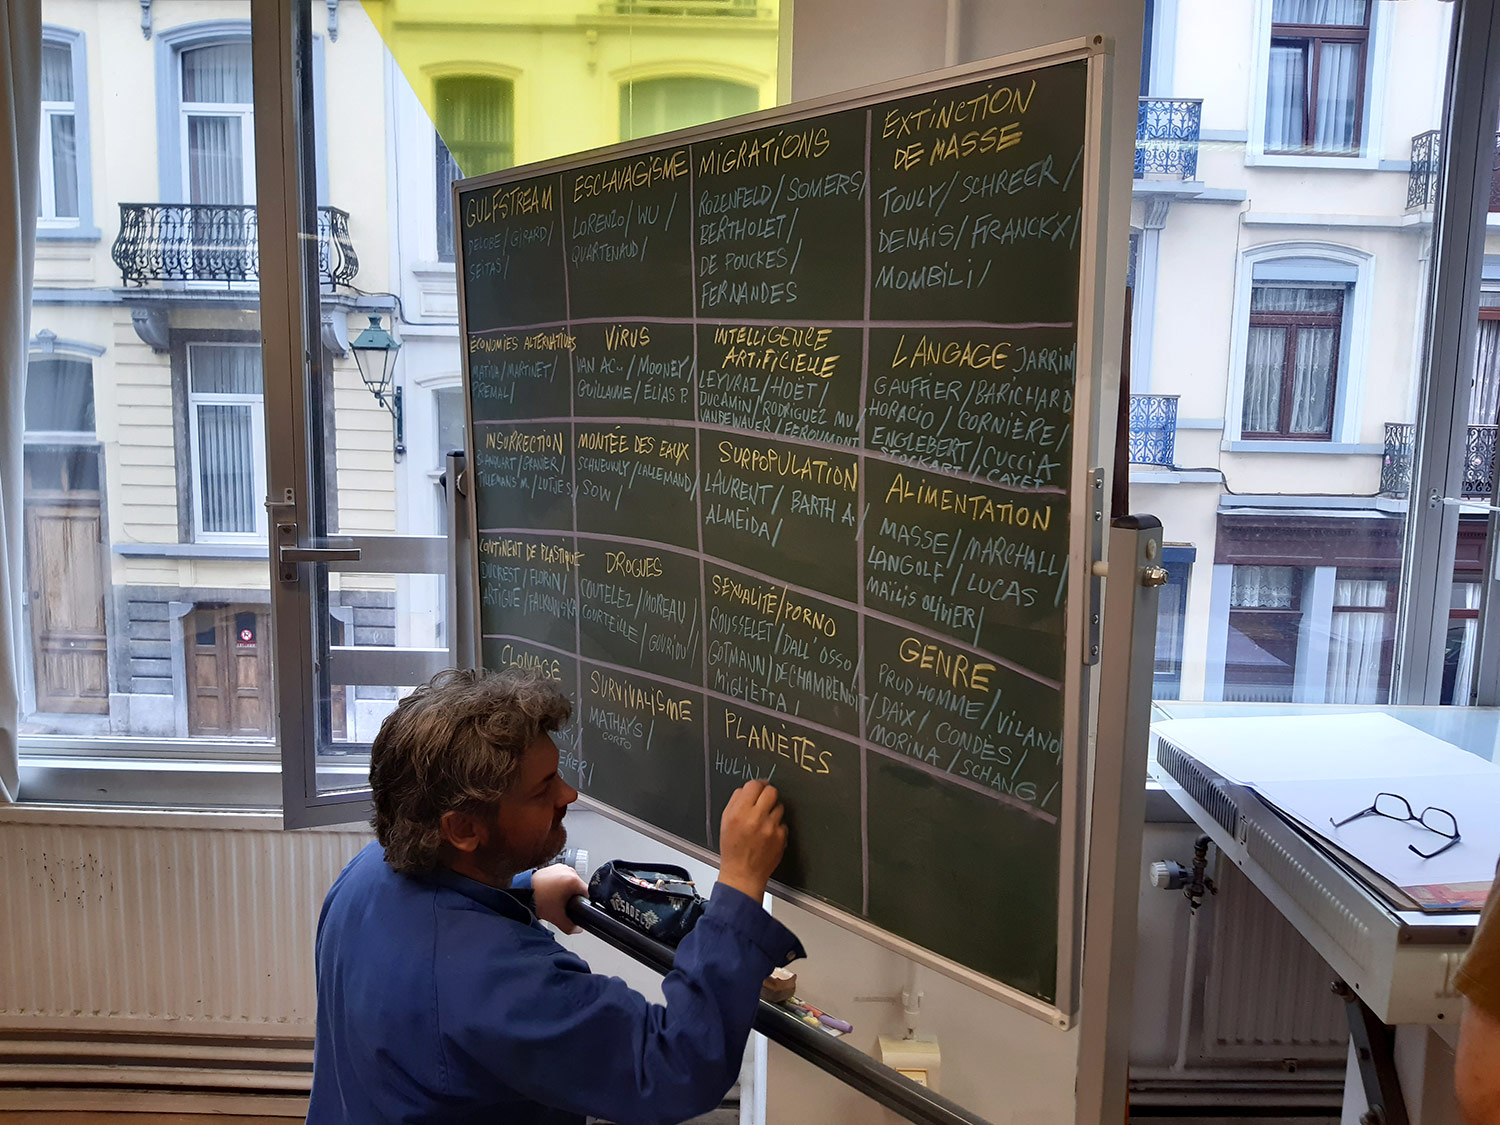 GULFSTREAM
DELOBE / GIRARD /
SEITAS /
ESCLAVAGISME
LORENZO / WU /
QUARTENAUD /
MIGRATIONS
ROZENFELD / SOMERS /
BERTHOLET /
DE POUCKES /
FERNANDES
EXTINCTION
DE MASSE
TOULY / SCHREER /
DENAIS / FRANCKX /
MOMBILI /
ECONOMIES ALTERNATIVES
MATIVA / MARTINET /
PREMAL /
VIRUS
VAN AC~ / MOONEY /
GUILLAUME / ÉLIAS P.
INTELLIGENCE
ARTIFICIELLE
LEYVRAZ / HOËT /
DUCAMIN / RODRIGUEZ MU /
VANDEWAUER / FEROUMONT
LANGAGE JARRIN
GAUFFIER / BARICHARD
HORACIO / CORNIÈRE /
ENGLEBERT / CUCCIA
STOCKART / CAYET
INSURRECTION
BLANQUART / GRANIER /
TILLEMANS M. / LUTJES
MONTÉE DES EAUX
SCHNEUWLY / LALLEMAND
SOW /
SURPOPULATION
LAURENT / BARTH A. /
ALMEIDA /
ALIMENTATION
MASSE / MARCHALL
LANGOLF / LUCAS
MAÏLIS OLIVIER /
CONTINENT DE PLASTIQUE
DUCREST / FLORIN /
ARTIGUE / FALKOWSKA
DROGUES
COUTELEZ / MOREAU /
COURTEILLE / GOURIOU /
SEXUALITÉ / PORNO
ROUSSELET / DALL'OSSO /
GOTMANN / DECHAMBENOIT /
MIGLIETTA /
GENRE
PRUDHOMME / VILANO
DAIX / CONDÈS /
MORINA / SCHANG /
CLONAGE
SURVIVALISME
MATHAYS /
CORTO
PLANÈTES
HULIN /